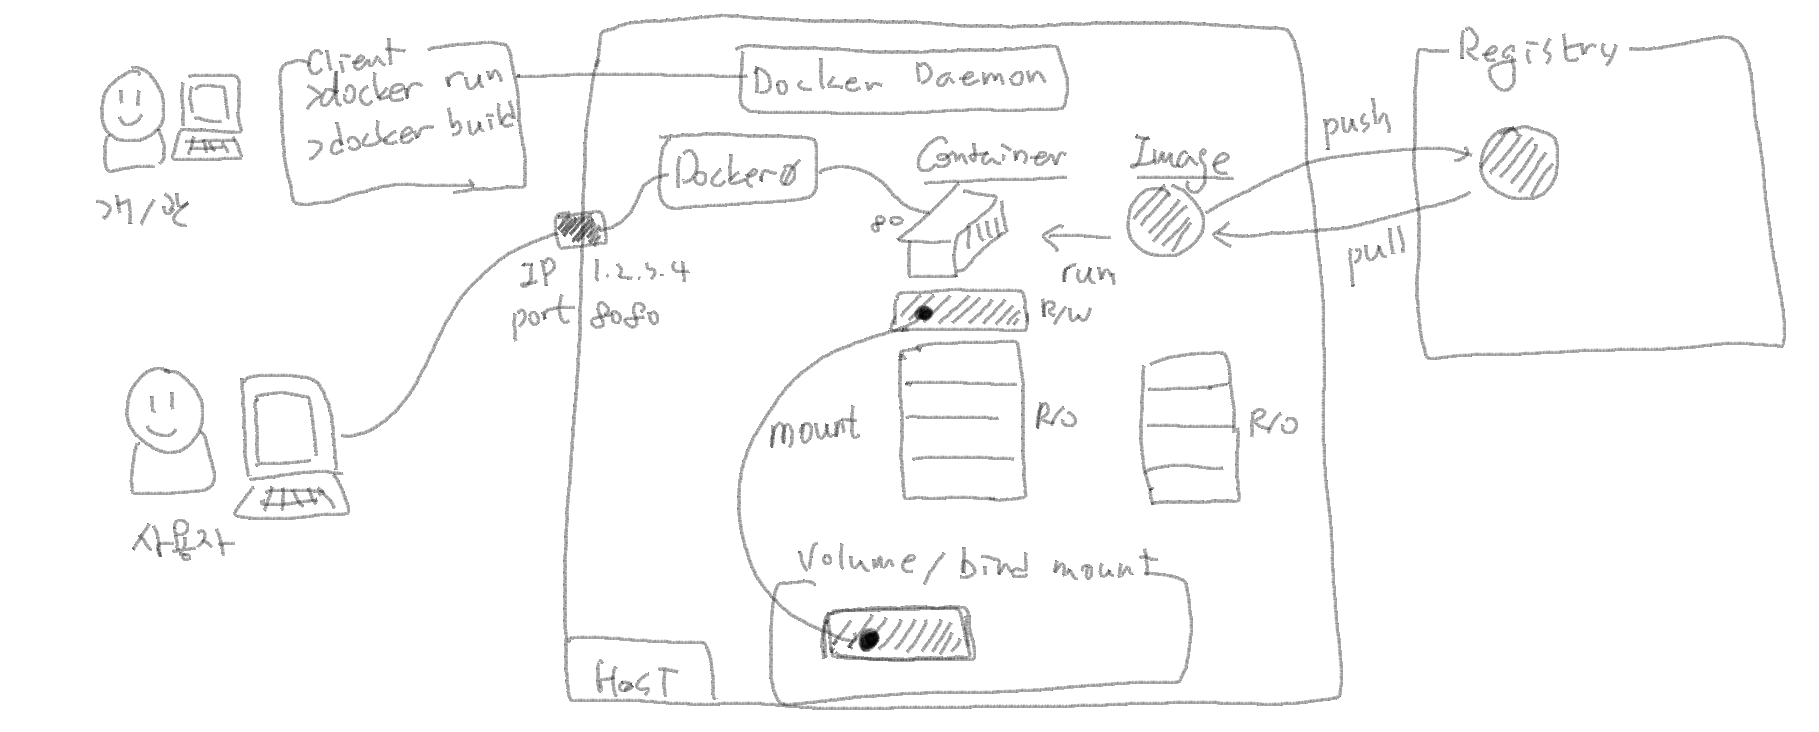 Client
>docker run
>docker build
개/관
Docker Daemon
Registry
Docker0
Container
Image
push
pull
80
run
IP 1.2.3.4
port 8080
R/W
R/O
R/O
mount
사용자
Volume/bind mount
HOST